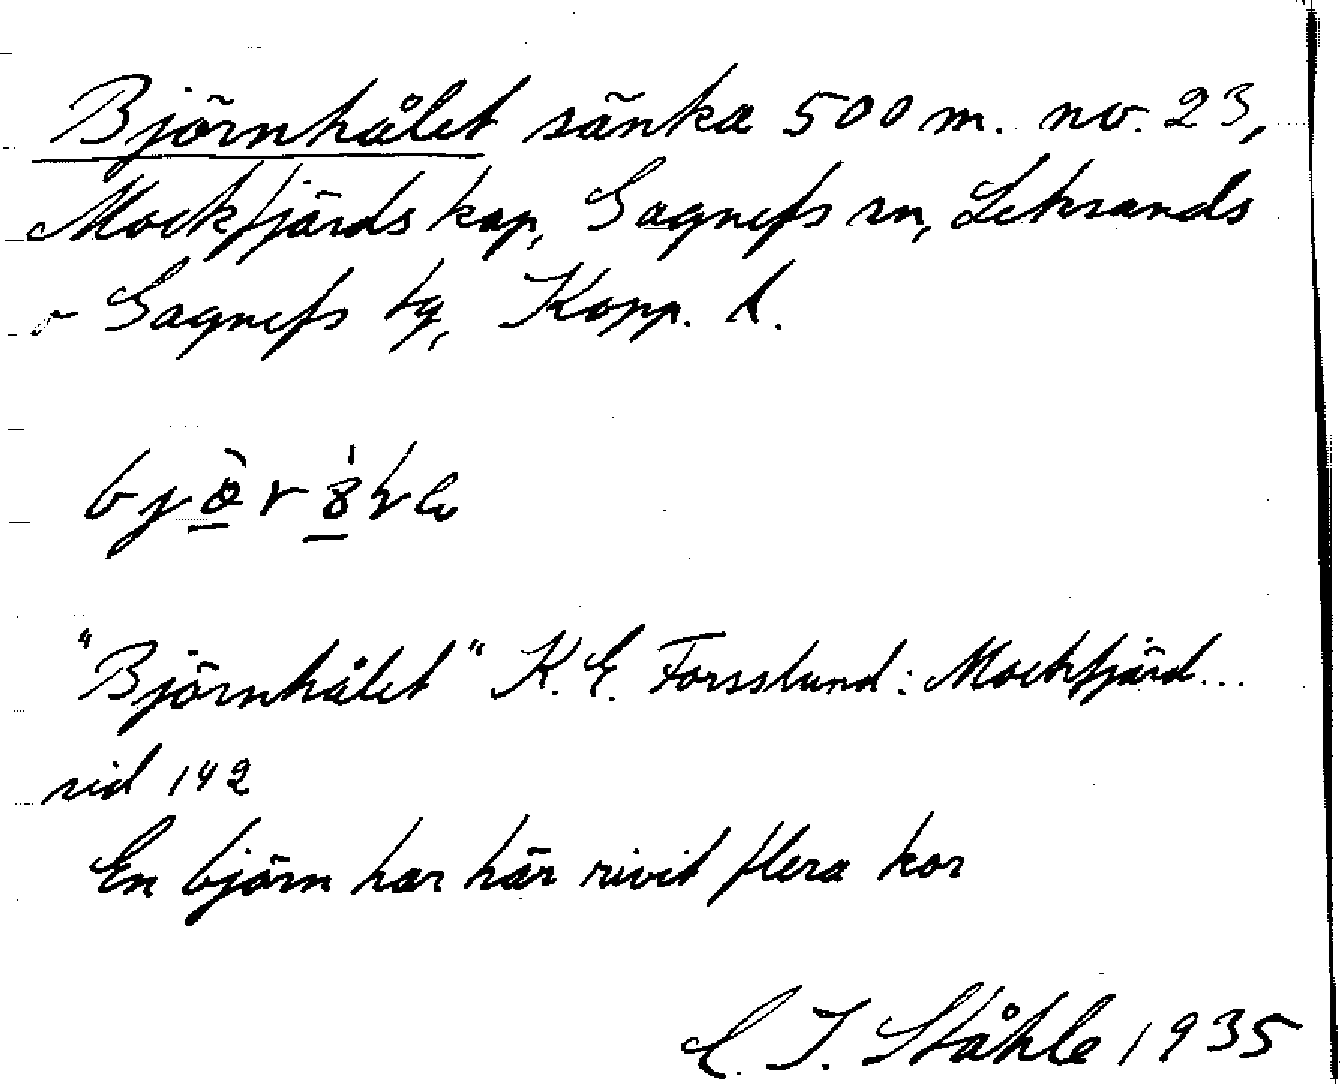 Björnhålet sänka 500 m. nv. 23,
Mockfjärds kap, Gagnefs sn, Leksands
o Gagnefs tg, Kopp. l.
"Björnhålet" K. E. Forsslund: Mockfjärd...
sid 142
En björn har här rivit flera kor
C. I. Ståhle 1935